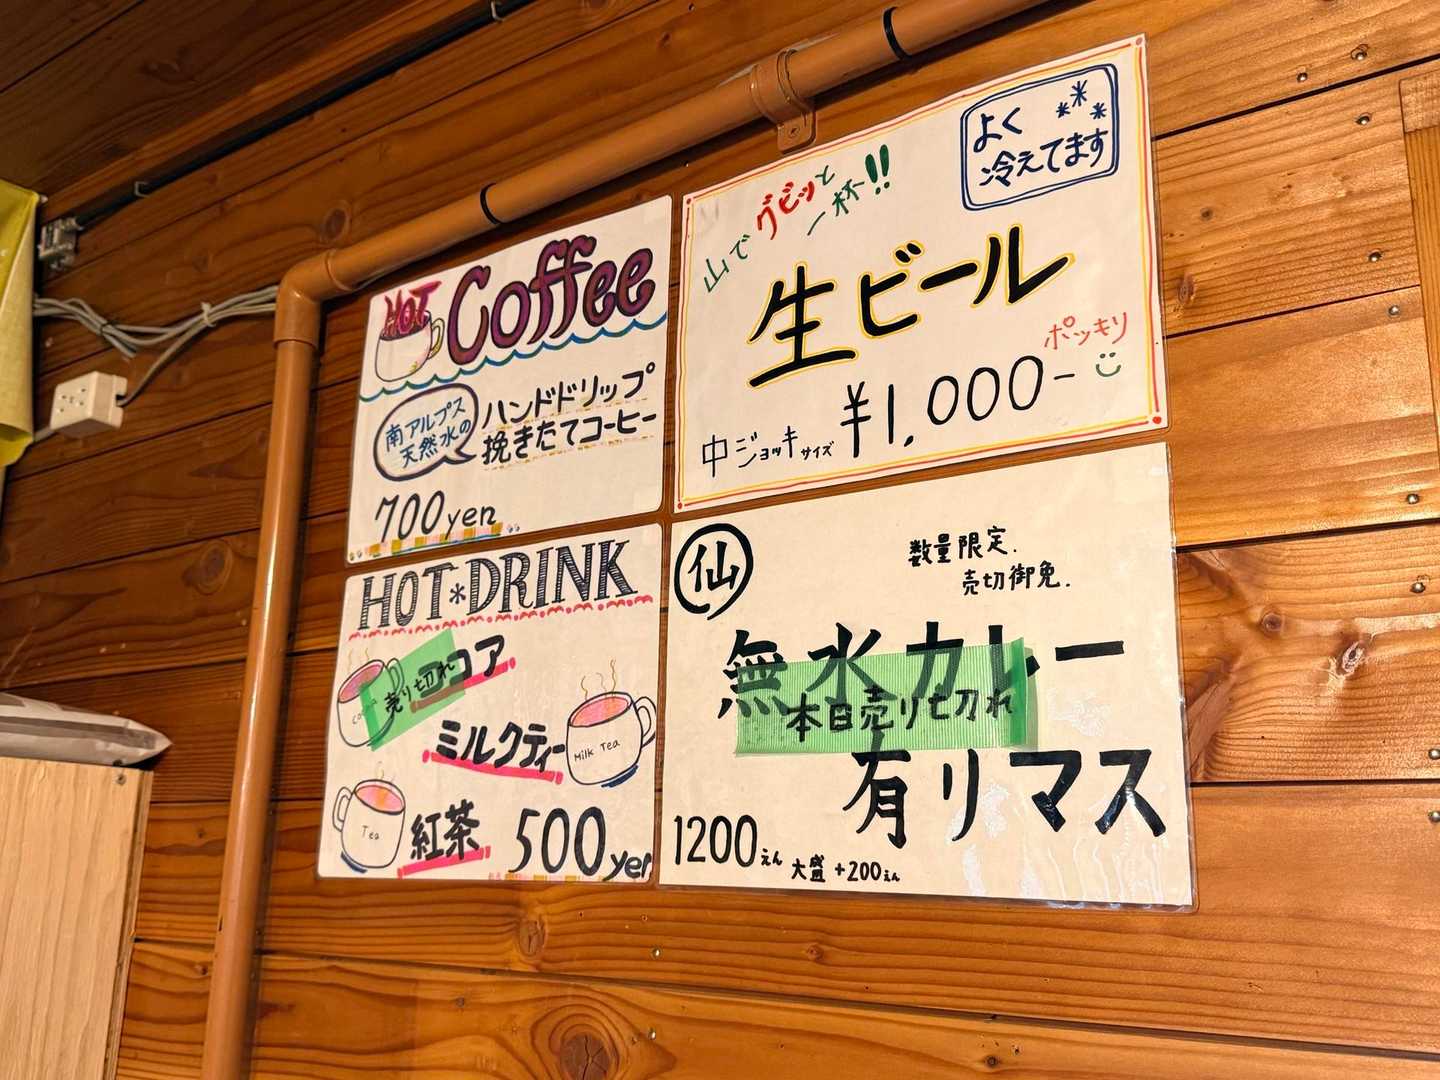 HOT Coffee
南アルプス
天然水の
ハンドドリップ
挽きたてコーヒー
700yen
よく
冷えてます
山でグビッと
一杯!!
生ビール
ポッキリ
中ジョッキサイズ ¥1,000-
HOT*DRINK
ココア
売り切れ
Cocoa
ミルクティー
Milk Tea
Tea
紅茶 500yen
仙
数量限定.
売切御免.
無水カレー
本日売り切れ
有リマス
1200えん 大盛 +200えん